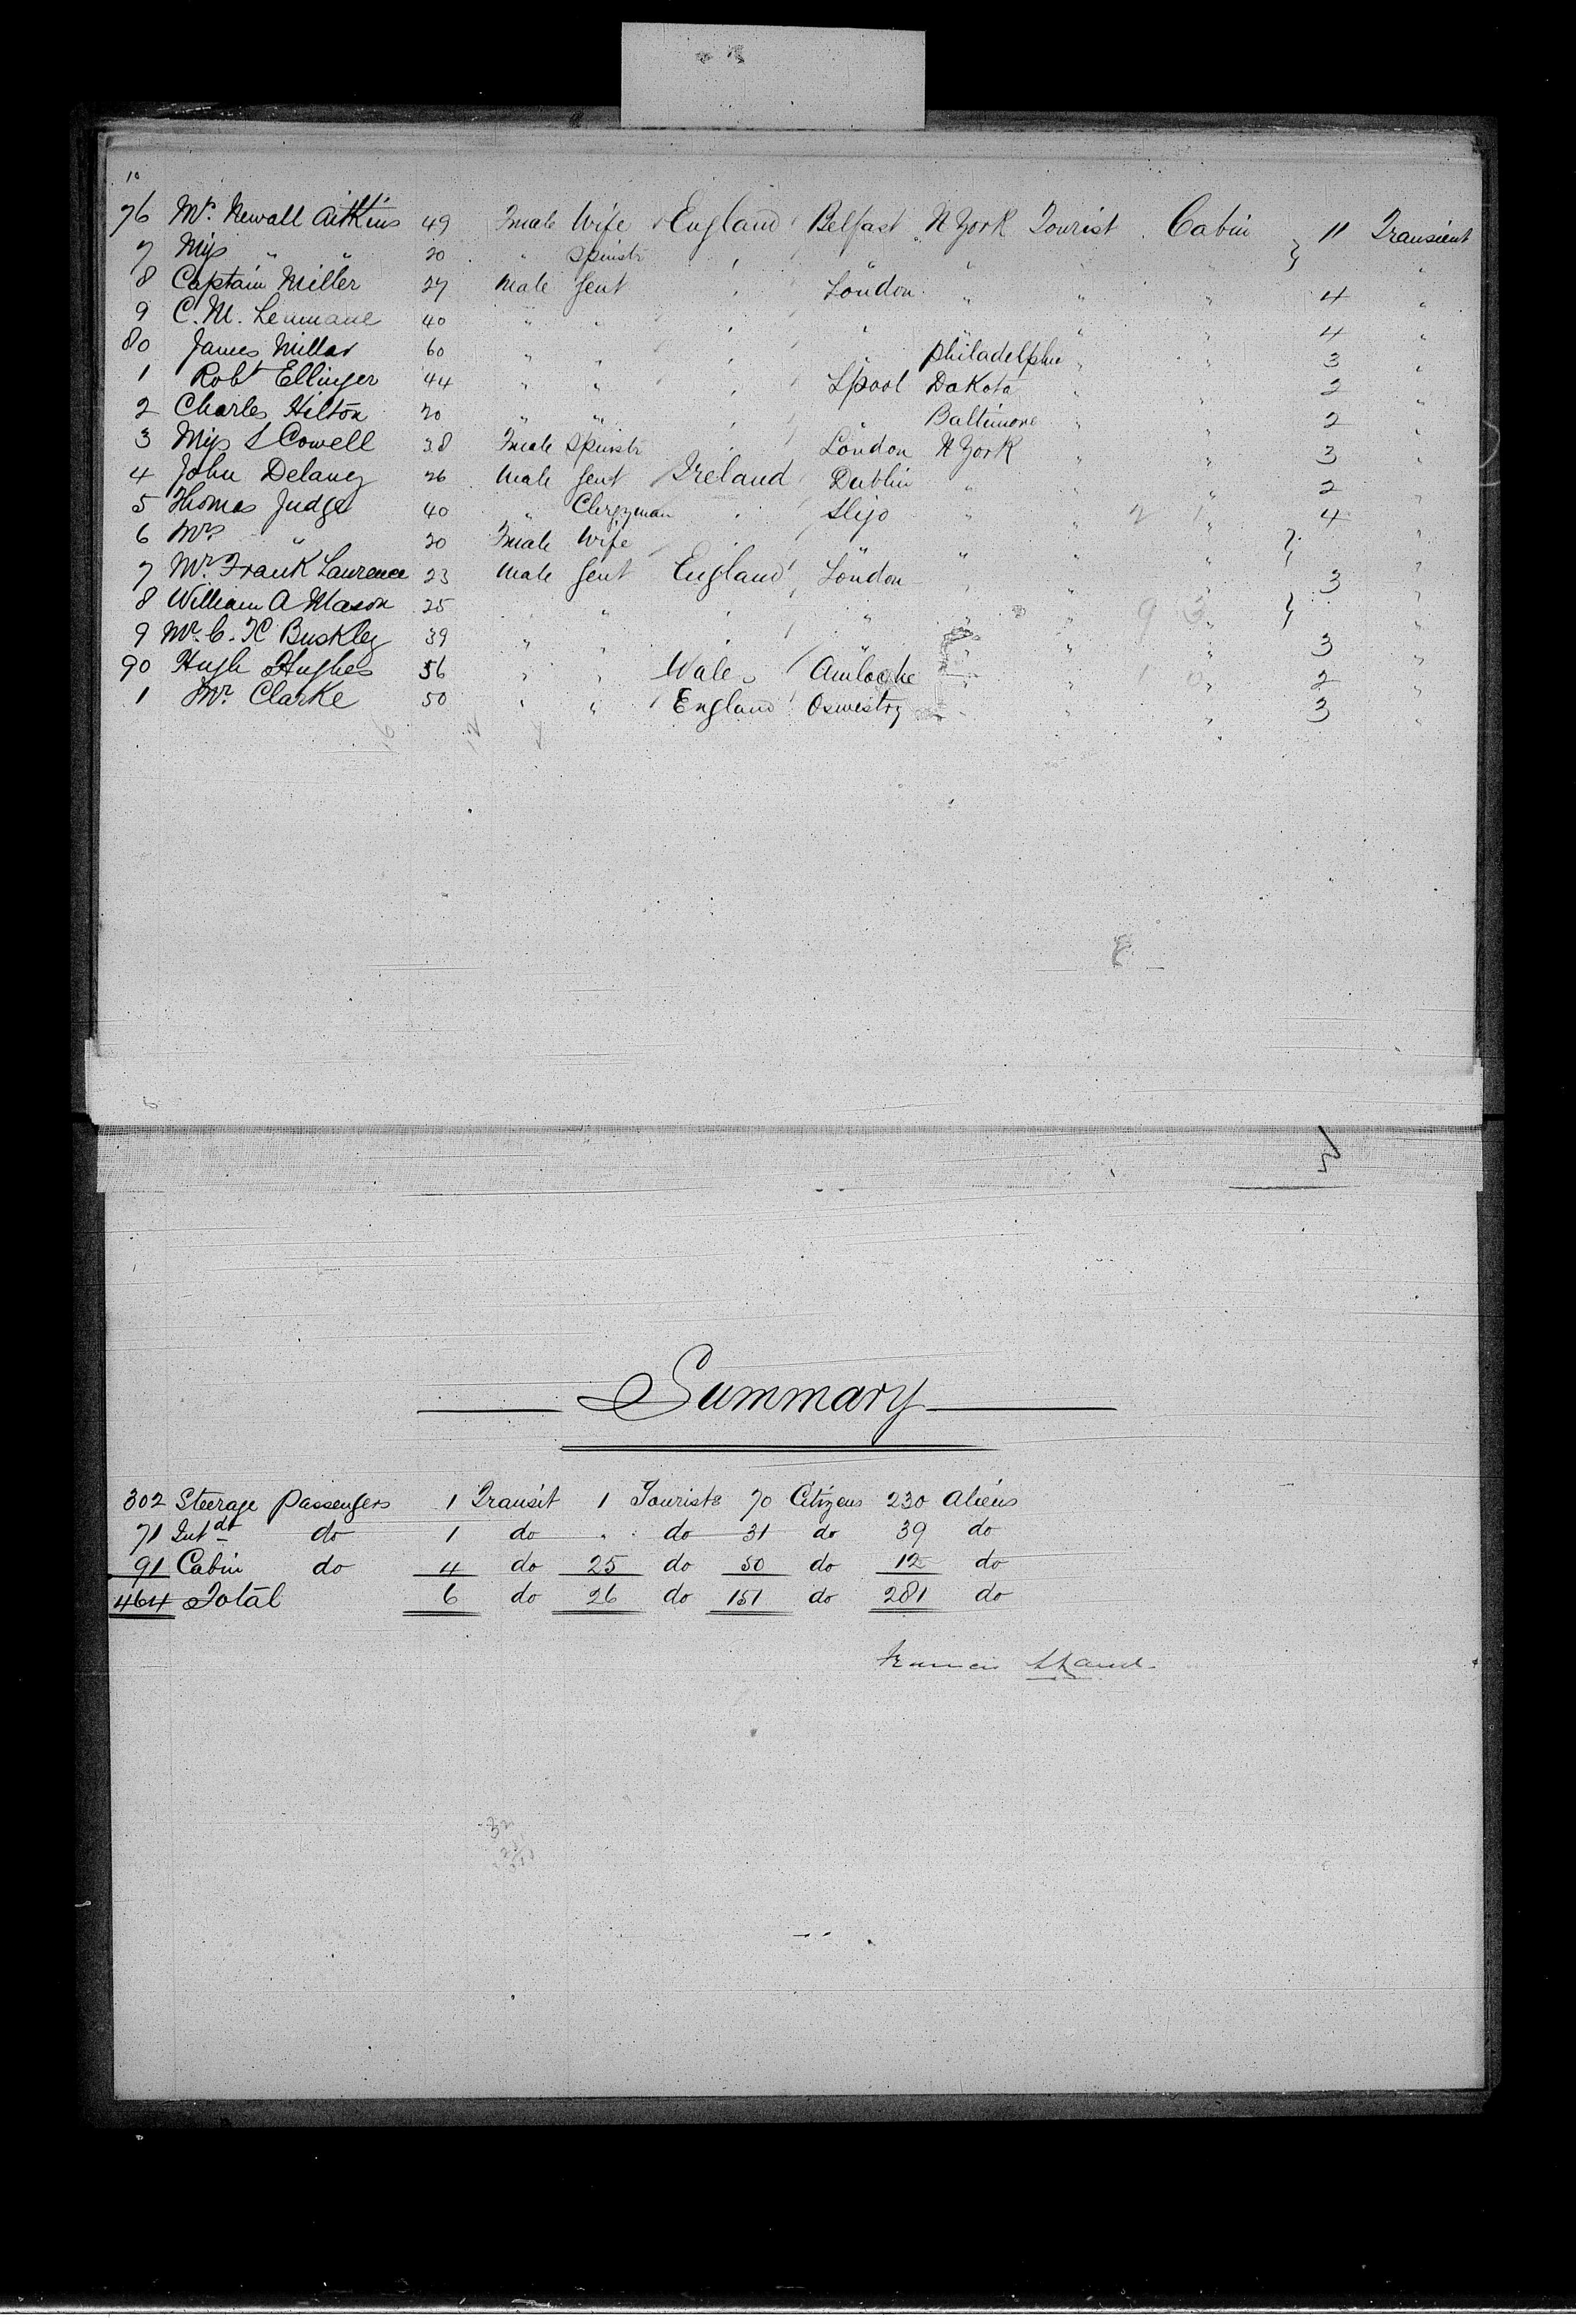 10
76 Mrs. Newall Aitkins 49 Fmale Wife England Belfast N York Tourist Cabin 11 Transient
7 Miss " " 20 " Spinstr " " " " " "
8 Captain Miller 27 Male Gent " London " " " 4 "
9 C. M. 40 " " " " " " " 4 "
80 James Millar 60 " " " " Philadelphia " " 3 "
1 Robt Ellinger 44 " " " Lpool Dakota " " 2 "
2 Charles Hilton 20 " " " " Baltimore " " 2 "
3 Miss L Cowell 38 Fmale Spinstr " London N York " " 3 "
4 John Delany 26 Male Gent Ireland Dublin " " " 2 "
5 Thomas Judge 40 " Clergyman " Sligo " " " 4 "
6 Mrs " 30 Fmale Wife " " " " " "
7 Mr. Frank Laurence 23 Male Gent England London " " " 3 "
8 William A Mason 25 " " " " " " " "
9 Mr. C. K Buskley 39 " " " " " " " 3 "
90 Hugh Hughes 56 " " Wales Amloche " " " 2 "
1 Mr. Clarke 50 " " England Oswestry " " " 3 "
Summary
302 Steerage Passengers 1 Transit 1 Tourists 70 Citizens 230 Aliens
71 Intdt do 1 do " do 31 do 39 do
91 Cabin do 4 do 25 do 50 do 12 do
464 Total 6 do 26 do 151 do 281 do
Francis